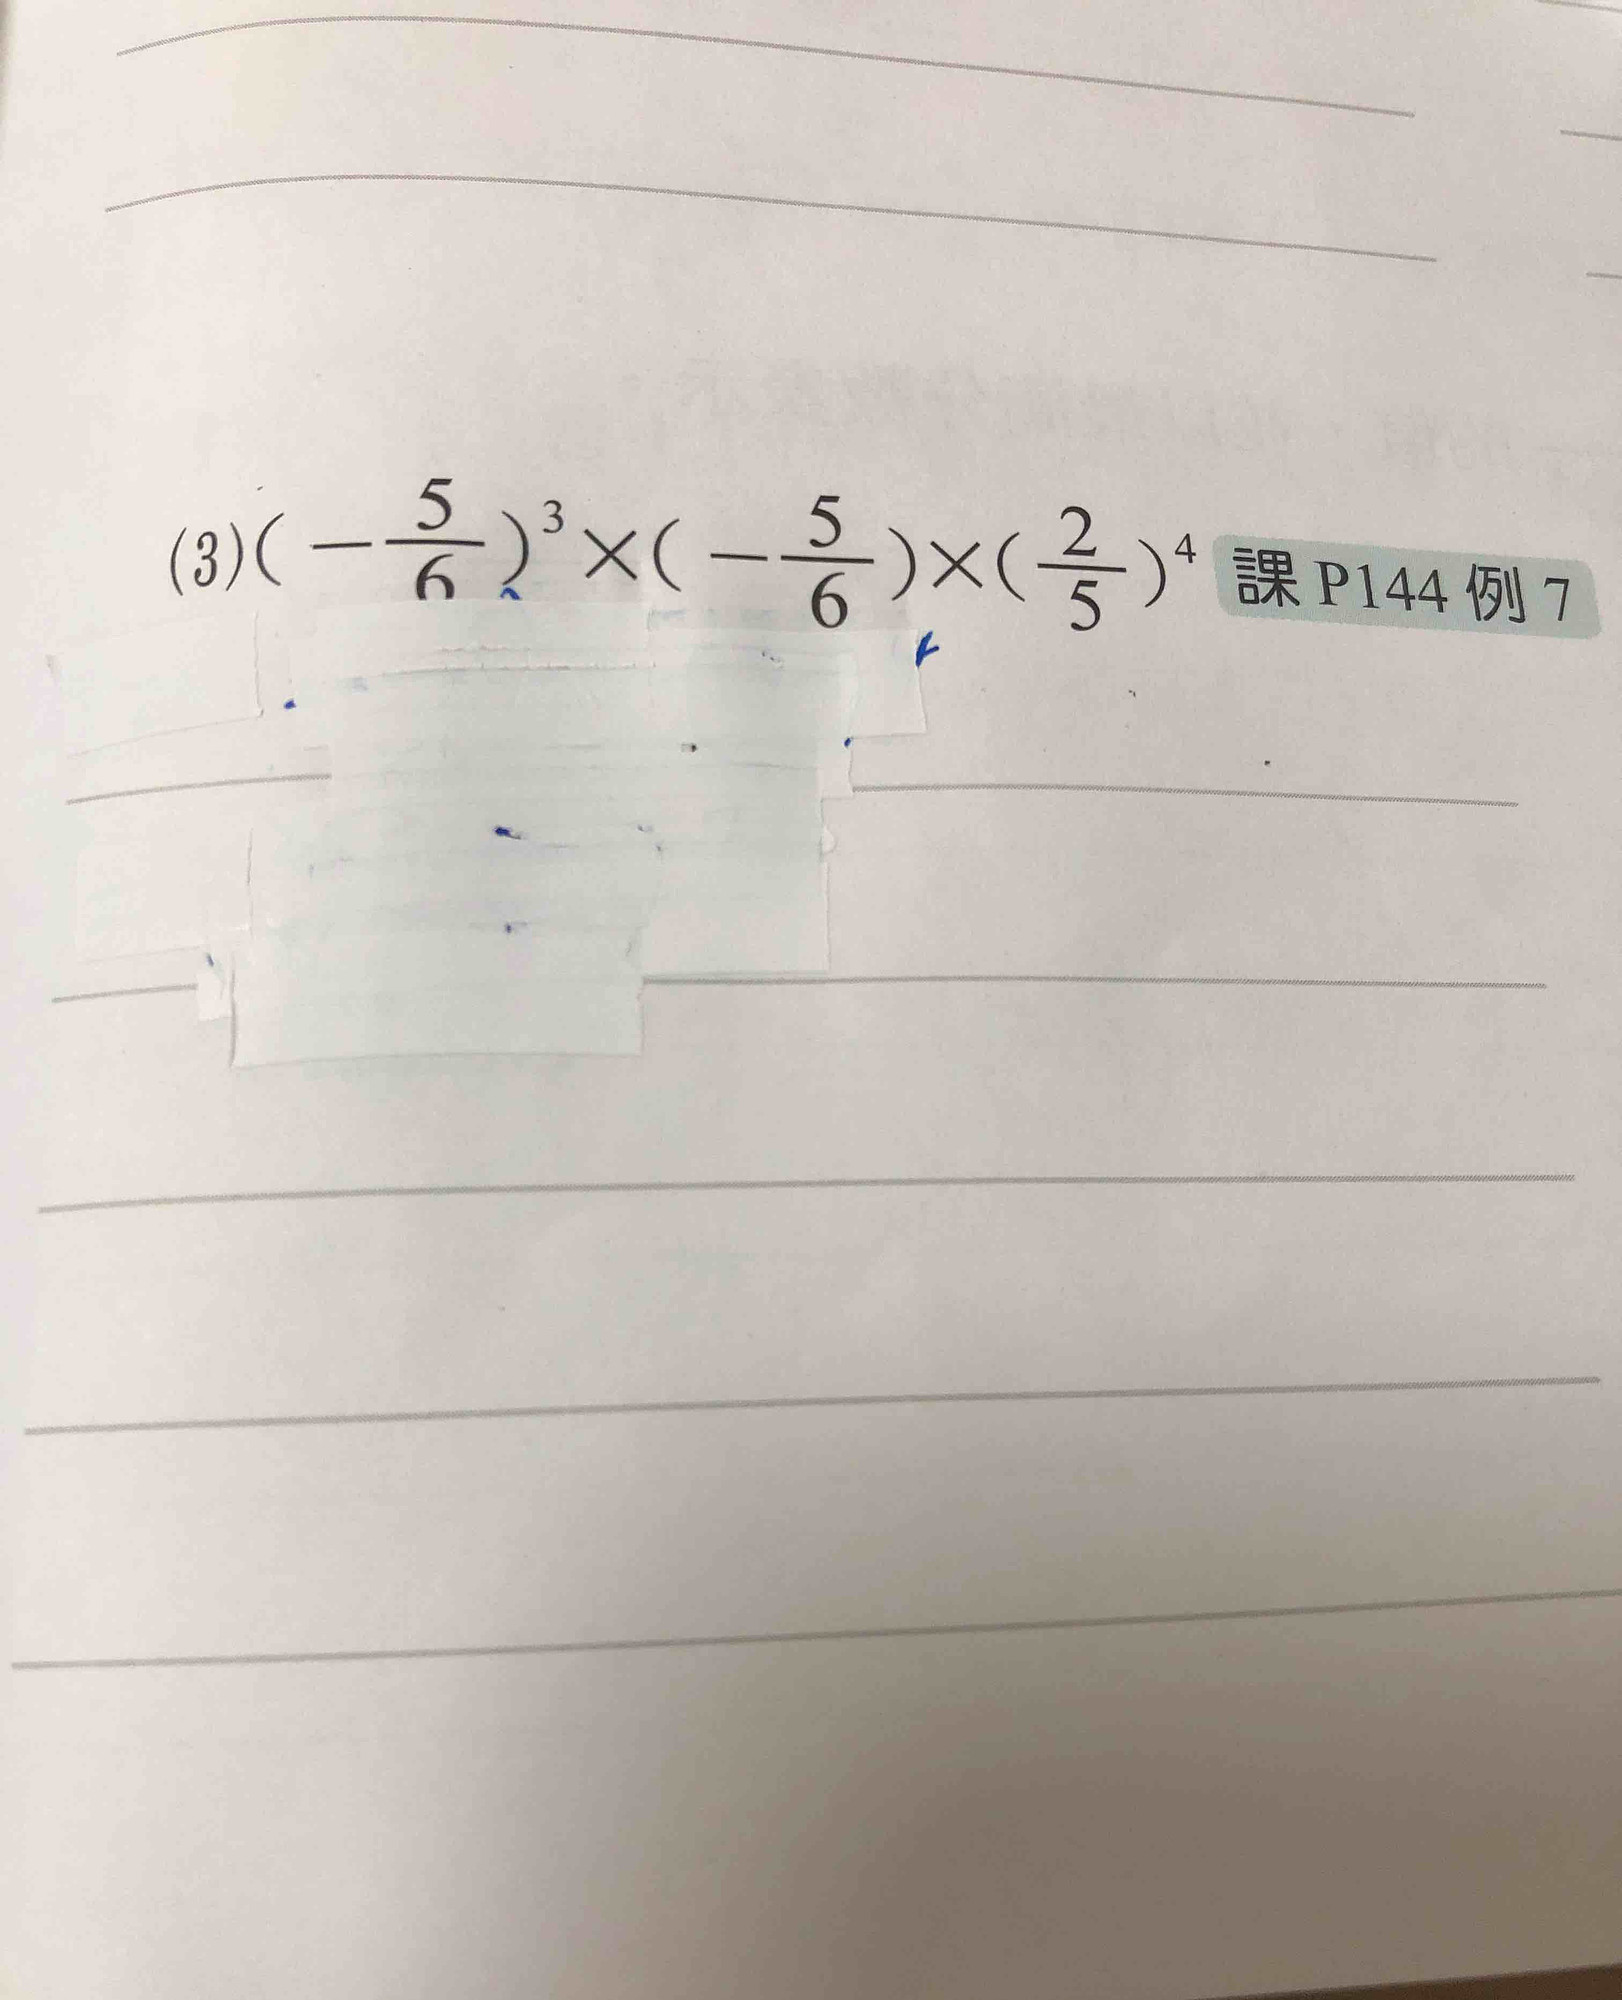 (3)(－5/6)³×(－5/6)×(2/5)⁴ 課 P144 例 7